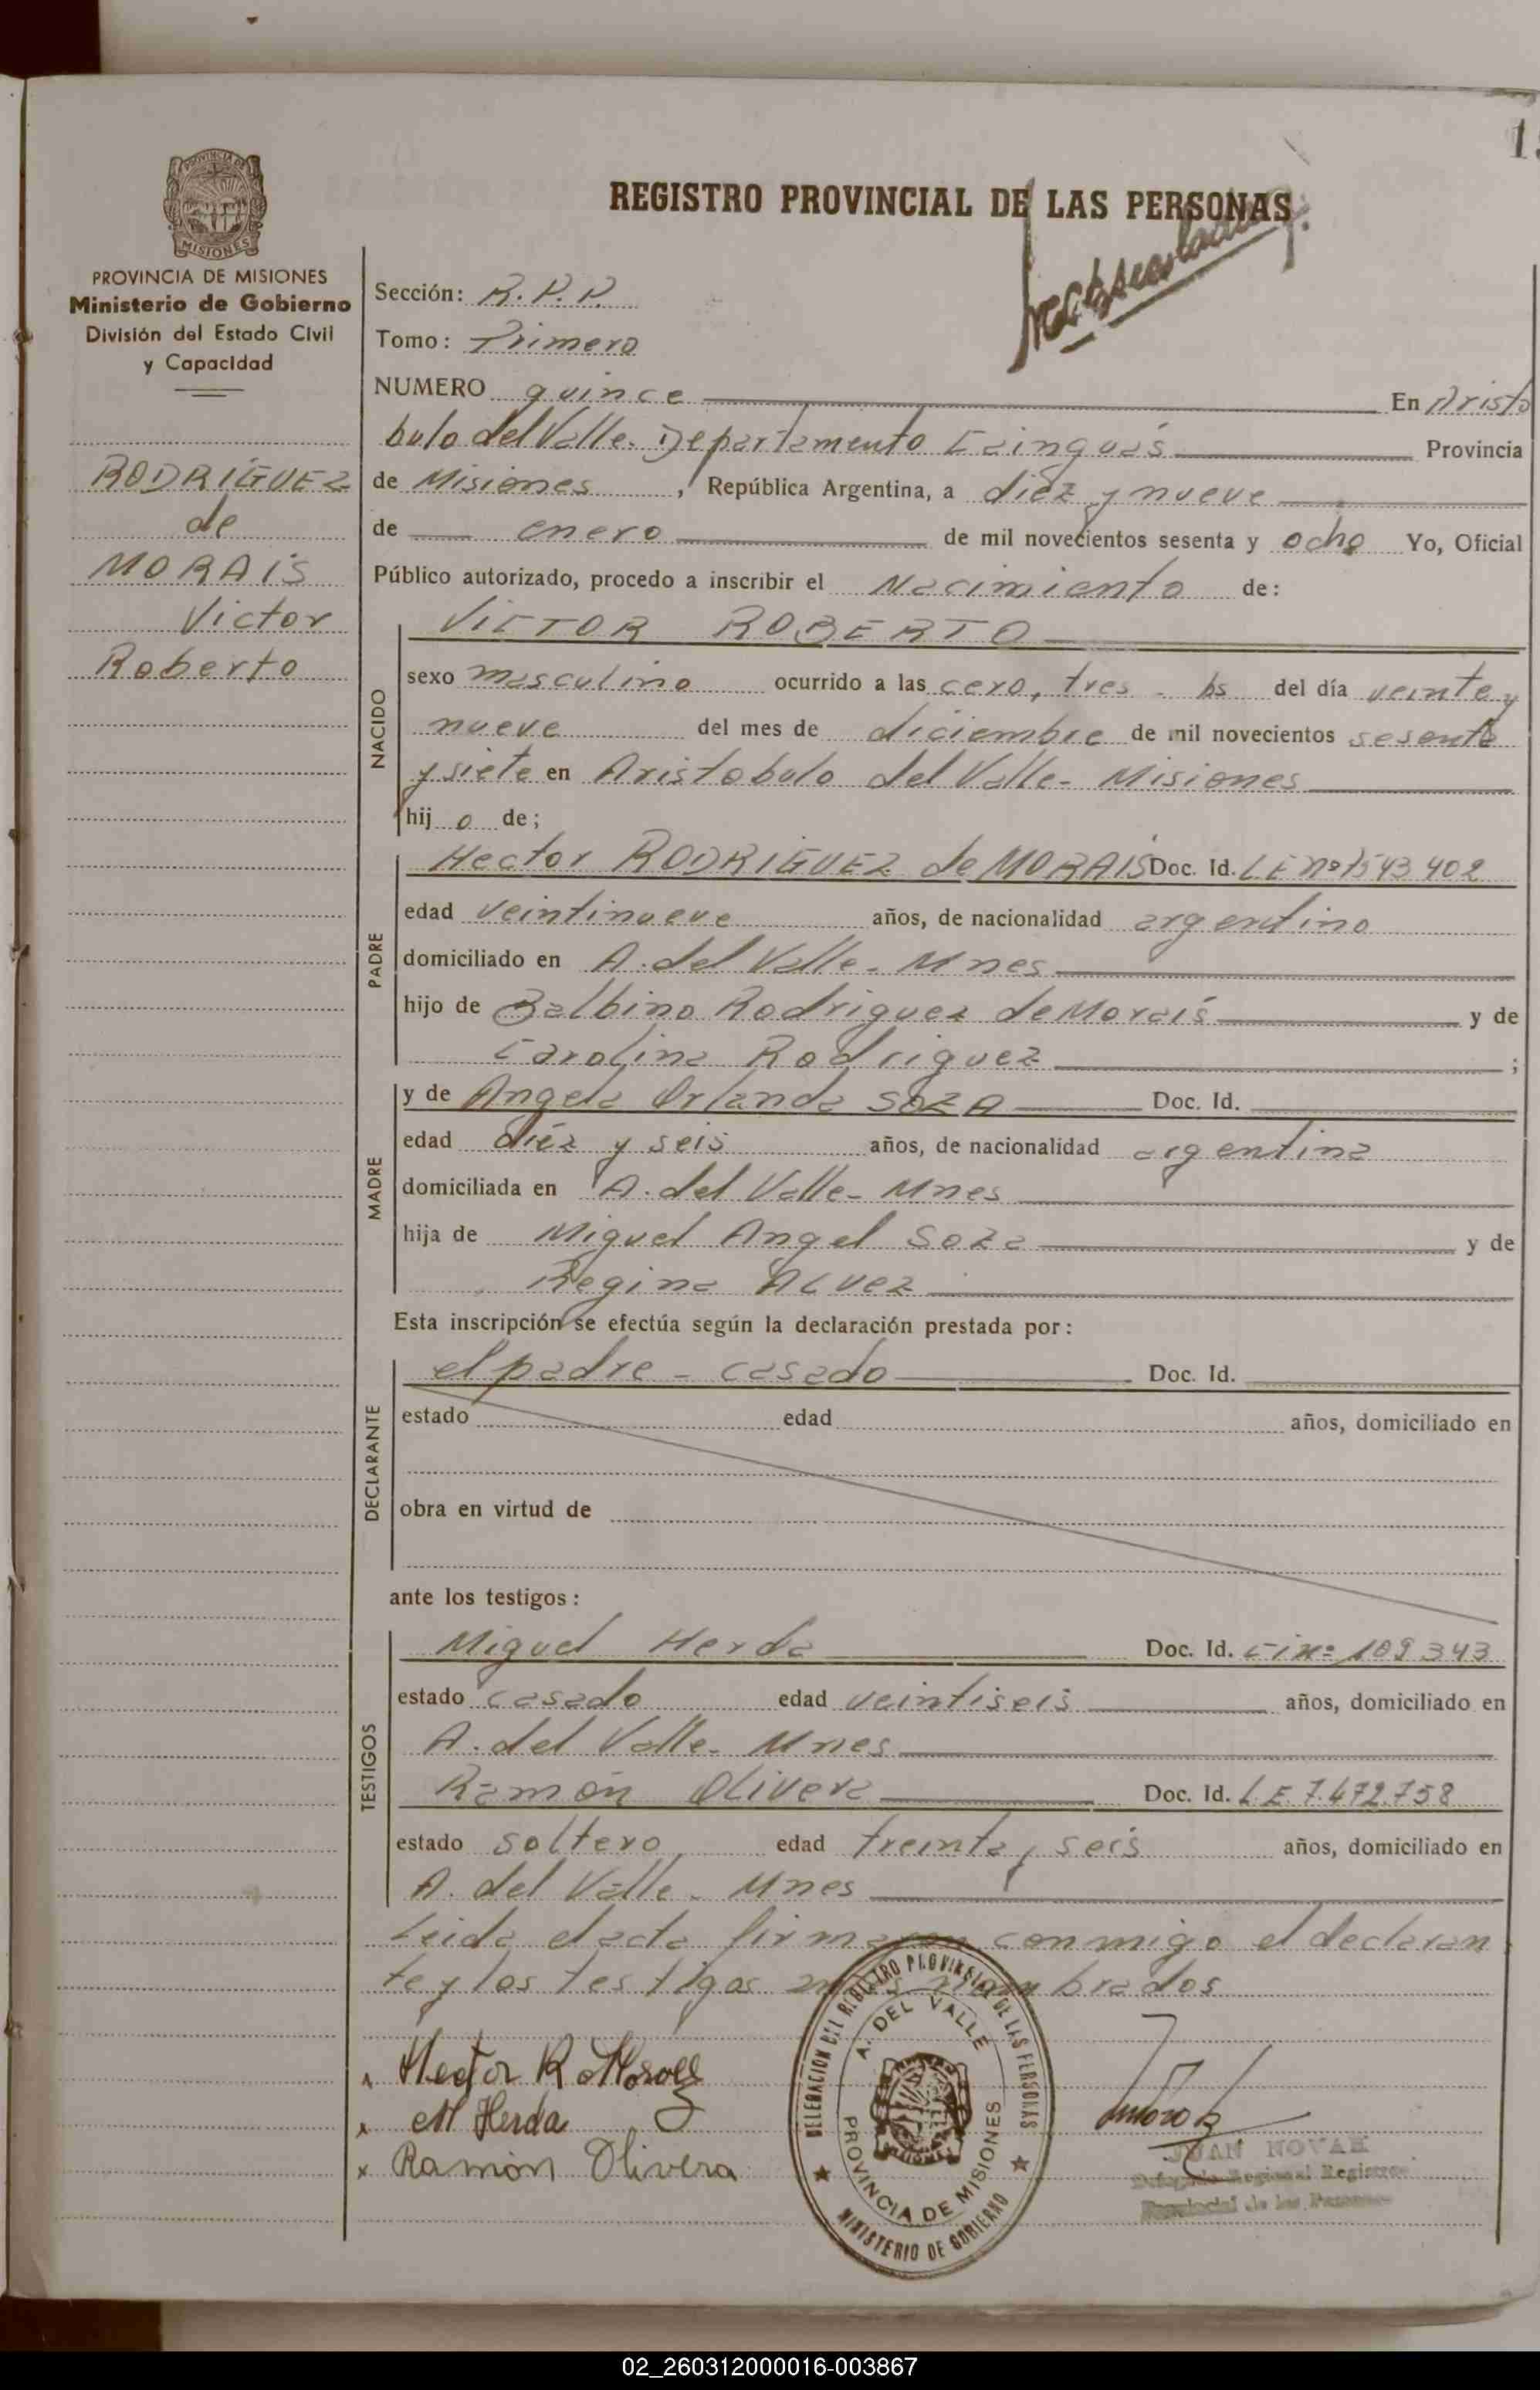 1
REGISTRO PROVINCIAL DE LAS PERSONAS
PROVINCIA DE
MISIONES
PROVINCIA DE MISIONES
Ministerio de Gobierno
División del Estado Civil
y Capacidad
RODRIGUEZ
de
MORAIS
Victor
Roberto
Sección: R.P.P.
Tomo: Primero
NUMERO quince En Aristo
bulo del Valle. Departamento Cainguás Provincia
de Misiones, República Argentina, a diez y nueve
de enero de mil novecientos sesenta y ocho Yo, Oficial
Público autorizado, procedo a inscribir el Nacimiento de:
NACIDO
VICTOR ROBERTO
sexo masculino ocurrido a las cero, tres - hs del día veinte y
nueve del mes de diciembre de mil novecientos sesenta
y siete en Aristobulo del Valle - Misiones
hij o de;
PADRE
Hector RODRIGUEZ de MORAIS Doc. Id. LE nº 1543 402
edad veintinueve años, de nacionalidad argentino
domiciliado en A. del Valle - Mnes
hijo de Balbino Rodriguez de Morais y de
Carolina Rodriguez ;
MADRE
y de Angela Orlanda SOZA Doc. Id.
edad diéz y seis años, de nacionalidad argentina
domiciliada en A. del Valle - Mnes
hija de Miguel Angel Soza y de
Regina ALVez
Esta inscripción se efectúa según la declaración prestada por:
DECLARANTE
el padre - casado Doc. Id.
estado edad años, domiciliado en
obra en virtud de
ante los testigos:
TESTIGOS
Miguel Herda Doc. Id. CI Nº 109343
estado casado edad veintiseis años, domiciliado en
A. del Valle - Mnes
Ramón Olivera Doc. Id. LE 7.472.758
estado soltero edad treinta y seis años, domiciliado en
A. del Valle - Mnes
Leida el acta firmaron conmigo el declaran
te y los testigos antes nombrados
Hector R de Morais
M Herda
Ramón Olivera
DELEGACION DEL REGISTRO PROVINCIAL DE LAS PERSONAS
A. DEL VALLE
PROVINCIA DE MISIONES
MINISTERIO DE GOBIERNO
JUAN NOVAK
Delegado Regional Registro
Provincial de las Personas
02_260312000016-003867